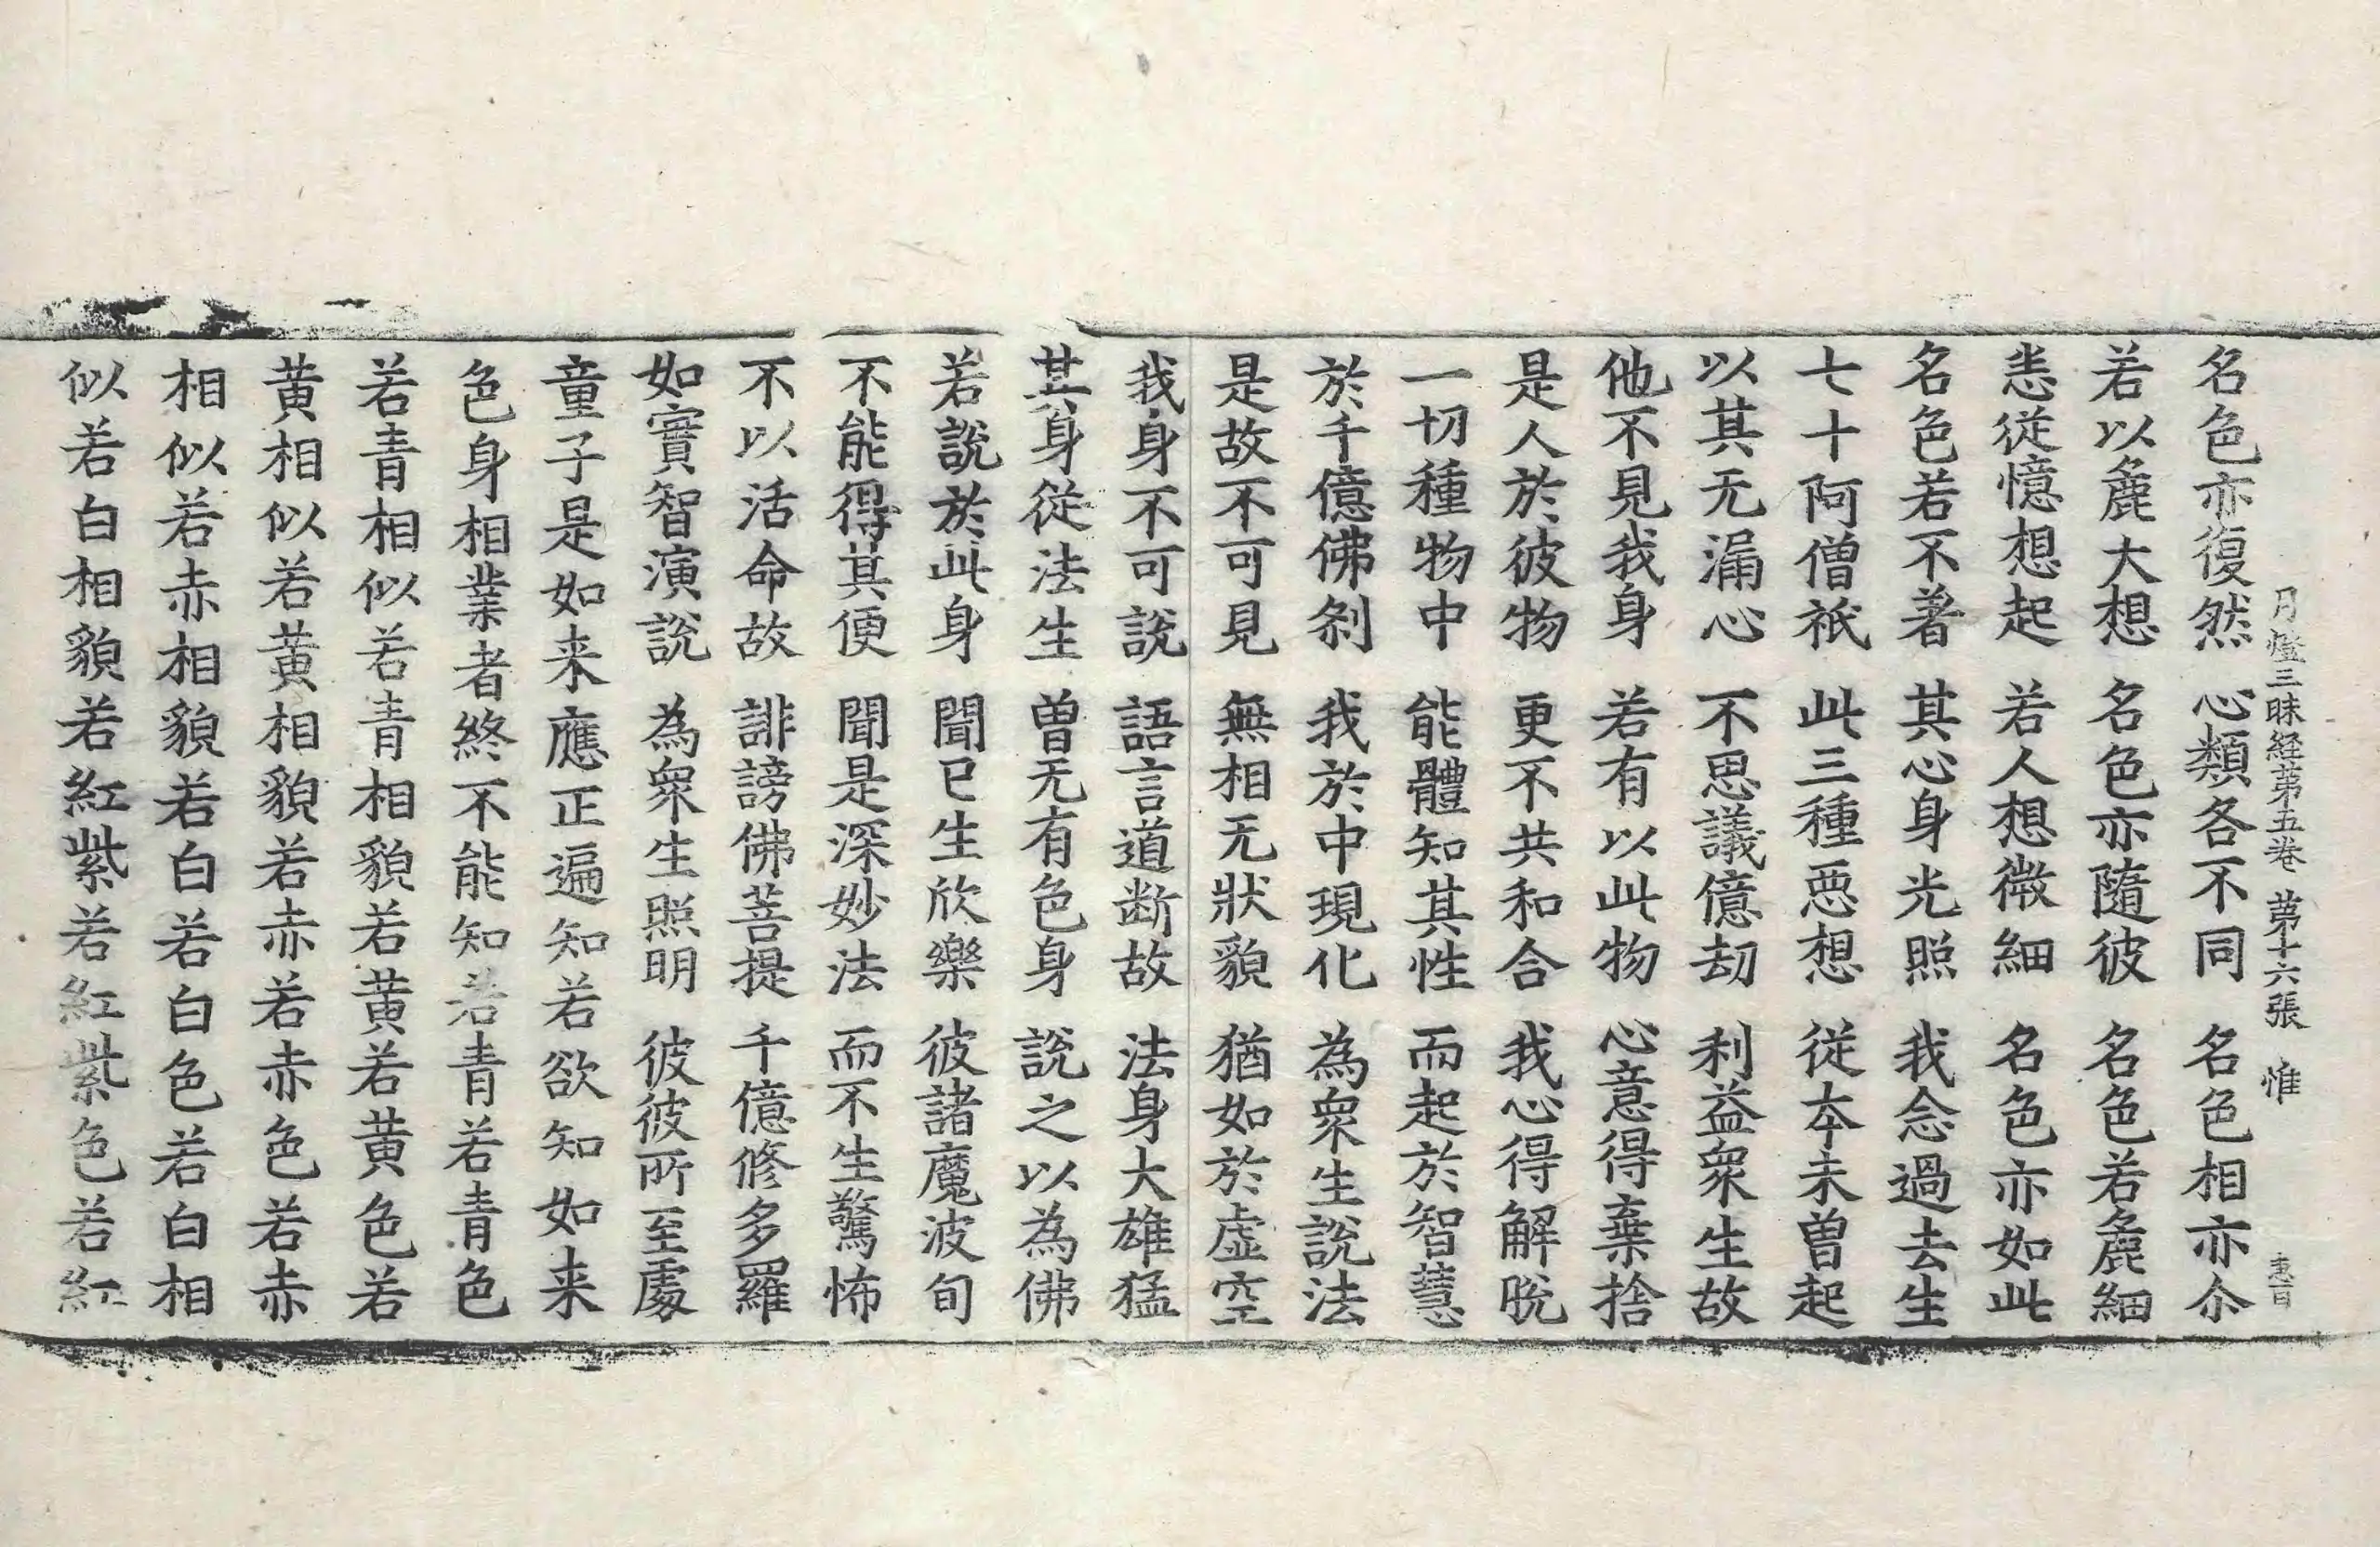 月燈三昧経苐五卷 苐十六張 惟
名色亦復然 心類各不同 名色相亦尒
若以麁大想 名色亦隨彼 名色若麁細
恚從憶想起 若人想微細 名色亦如此
名色若不著 其心身光照 我念過去生
七十阿僧祇 此三種惡想 從夲未曽起
以其无漏心 不思議億劫 利益衆生故
他不見我身 若有以此物 心意得棄捨
是人於彼物 更不共和合 我心得解脫
一切種物中 能體知其性 而起於智慧
於千億佛剎 我於中現化 為衆生說法
是故不可見 無相无狀貌 猶如於虛空
我身不可說 語言道断故 法身大雄猛
其身從法生 曽无有色身 說之以為佛
若說於此身 聞已生欣樂 彼諸魔波旬
不能得其便 聞是深妙法 而不生驚怖
不以活命故 誹謗佛菩提 千億修多羅
如實智演說 為衆生照明 彼彼所至處
童子是如来應正遍知若欲知如来
色身相業者終不能知若青若青色
若青相似若青相貌若黄若黄色若
黄相似若黄相貌若赤若赤色若赤
相似若赤相貌若白若白色若白相
似若白相貌若紅紫若紅紫色若紅